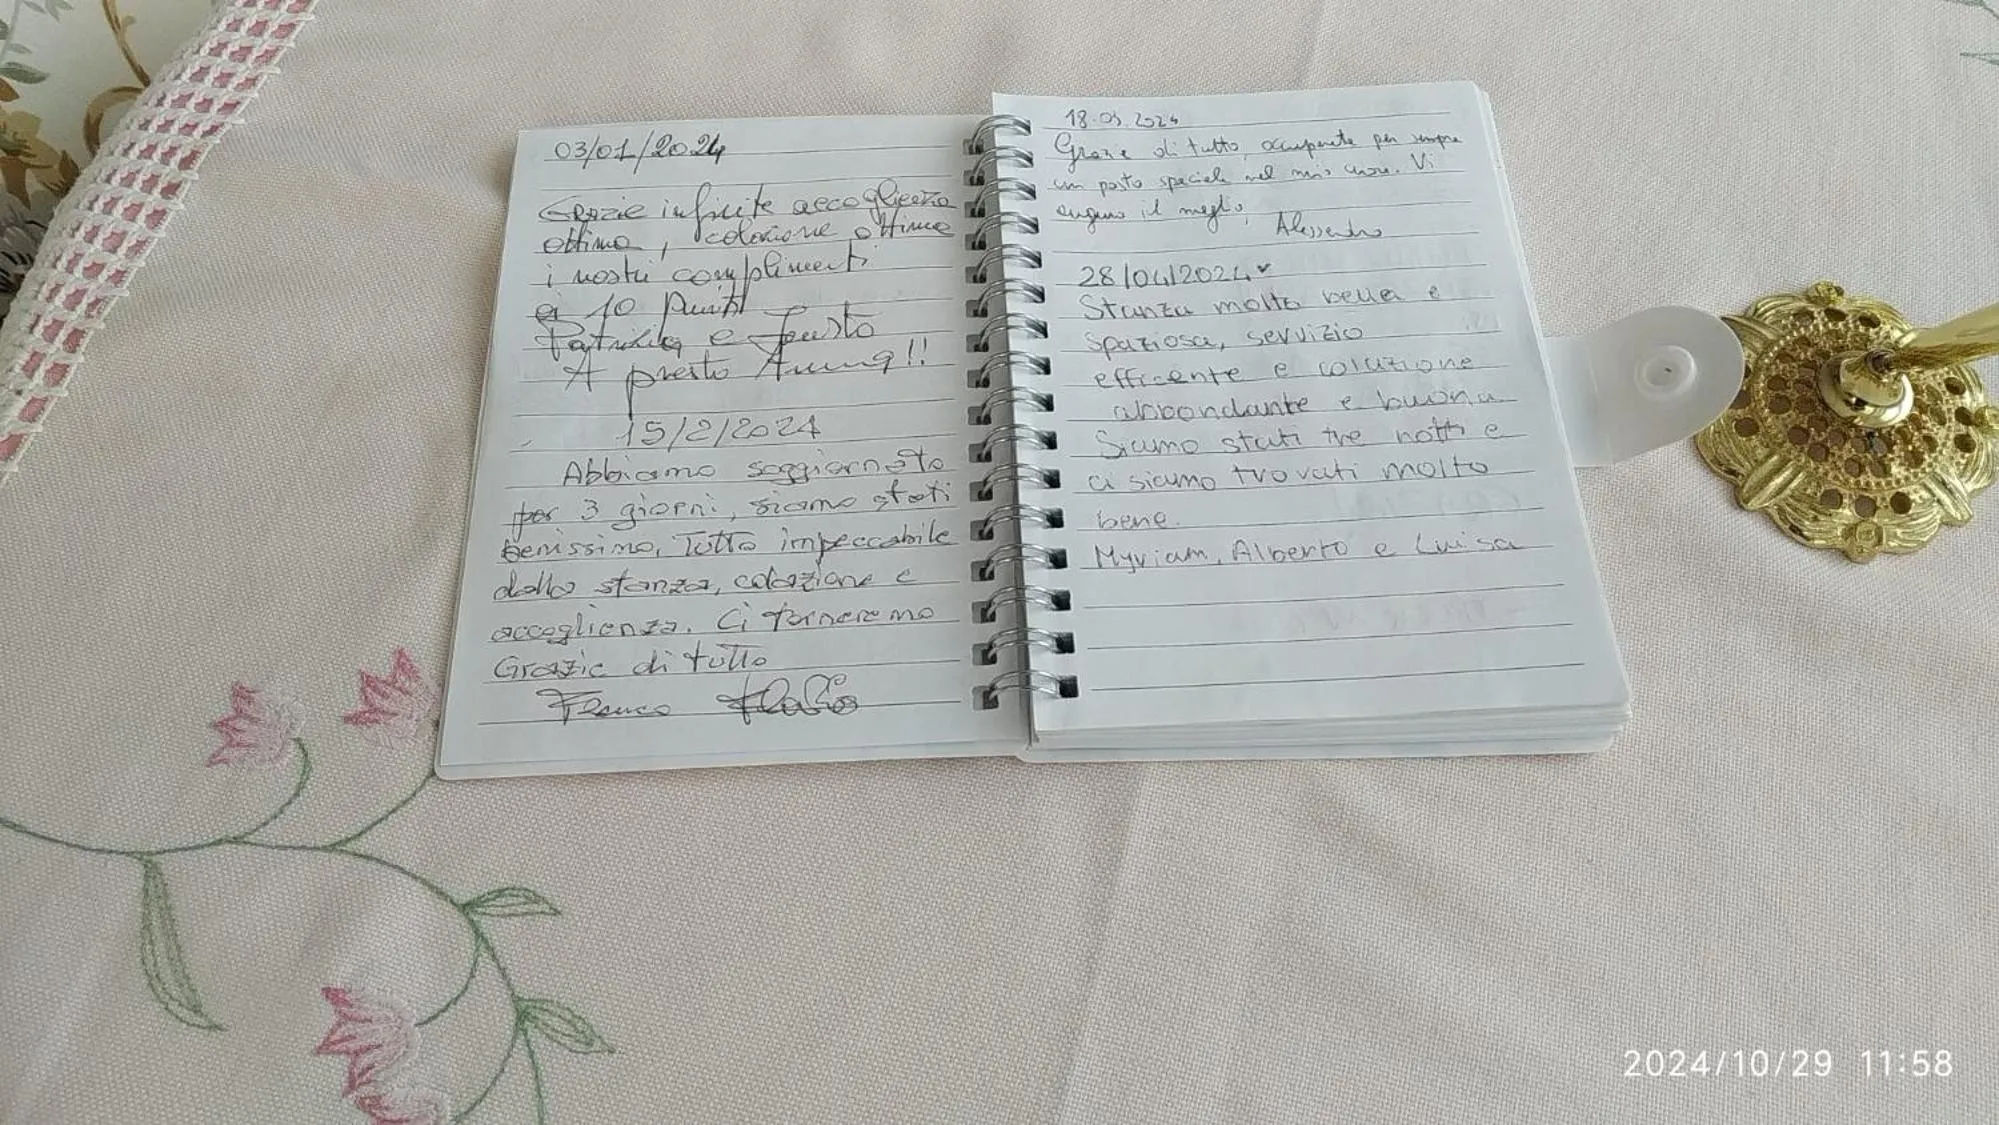 03/01/2024
Grazie infinite accoglienza
ottima, colazione ottima
i nostri complimenti
10 punti
Patrizia e Fausto
A presto Anna!!
15/2/2024
Abbiamo soggiornato
per 3 giorni, siamo stati
benissimo, Tutto impeccabile
dalla stanza, colazione e
accoglienza. Ci torneremo
Grazie di tutto
Franco
18.03.2024
Grazie di tutto, occuperete per sempre
un posto speciale nel mio cuore. Vi
auguro il meglio,
Alessandro
28/04/2024
Stanza molto bella e
spaziosa, servizio
efficente e colazione
abbondante e buona.
Siamo stati tre notti e
ci siamo trovati molto
bene.
Myriam, Alberto e Luisa
2024/10/29 11:58